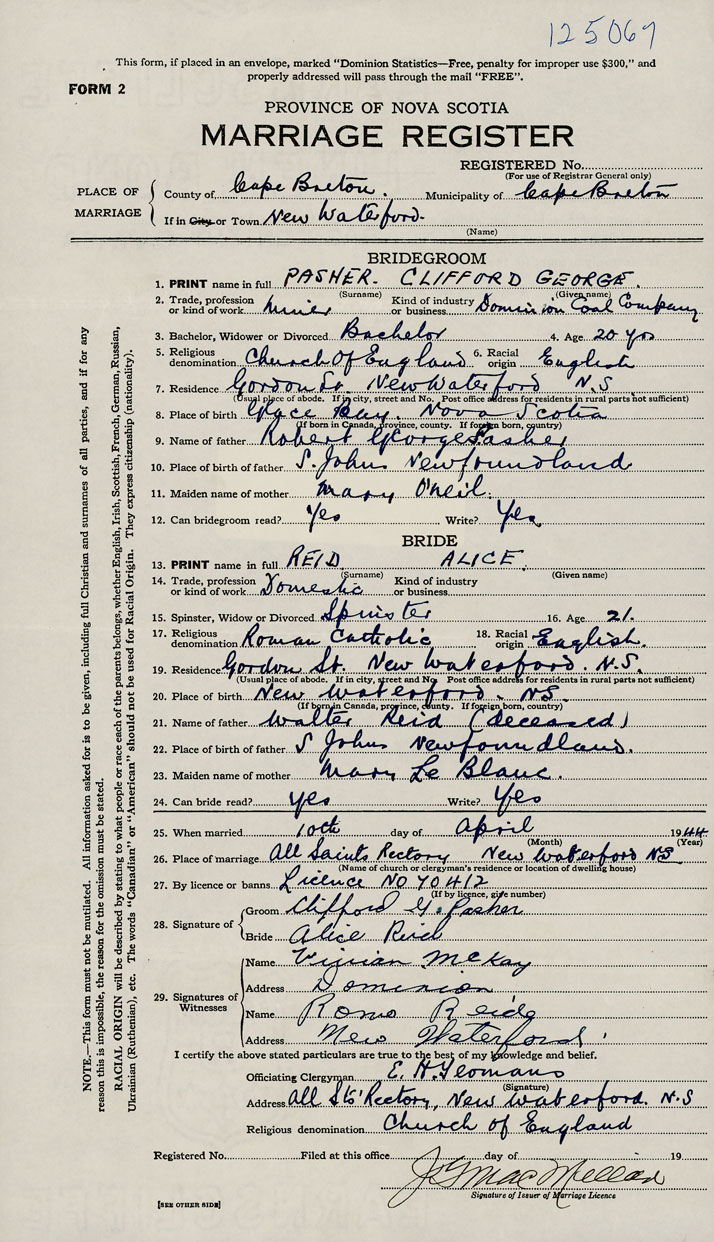 125067
This form, if placed in an envelope, marked "Dominion Statistics—Free, penalty for improper use $300," and
properly addressed will pass through the mail "FREE".
FORM 2
PROVINCE OF NOVA SCOTIA
MARRIAGE REGISTER
REGISTERED No.
(For use of Registrar General only)
PLACE OF MARRIAGE
County of Cape Breton. Municipality of Cape Breton
If in City or Town New Waterford.
(Name)
BRIDEGROOM
1. PRINT name in full PASHER. CLIFFORD GEORGE.
(Surname) (Given name)
2. Trade, profession or kind of work Miner Kind of industry or business Dominion Coal Company
3. Bachelor, Widower or Divorced Bachelor 4. Age 20 yrs
5. Religious denomination Church Of England 6. Racial origin English
7. Residence Gordon St. New Waterford N.S
(Usual place of abode. If in city, street and No. Post office address for residents in rural parts not sufficient)
8. Place of birth Glace Bay. Nova Scotia
(If born in Canada, province, county. If foreign born, country)
9. Name of father Robert George Pasher
10. Place of birth of father S. Johns Newfoundland
11. Maiden name of mother Mary O'Neil.
12. Can bridegroom read? Yes Write? Yes
BRIDE
13. PRINT name in full REID ALICE.
(Surname) (Given name)
14. Trade, profession or kind of work Domestic Kind of industry or business
15. Spinster, Widow or Divorced Spinster 16. Age 21.
17. Religious denomination Roman Catholic 18. Racial origin English.
19. Residence Gordon St. New Waterford. N.S.
(Usual place of abode. If in city, street and No. Post office address for residents in rural parts not sufficient)
20. Place of birth New Waterford. NS.
(If born in Canada, province, county. If foreign born, country)
21. Name of father Walter Reid (deceased)
22. Place of birth of father S Johns Newfoundland.
23. Maiden name of mother Mary Le Blanc.
24. Can bride read? yes Write? Yes
25. When married 10th day of April 1944
(Month) (Year)
26. Place of marriage All Saints Rectory New Waterford NS
(Name of church or clergyman's residence or location of dwelling house)
27. By licence or banns Licence NO 70412
(If by licence, give number)
28. Signature of
Groom Clifford G. Pasher
Bride Alice Reid
29. Signatures of Witnesses
Name Vivian McKay
Address Dominion
Name Reide
Address New Waterford
I certify the above stated particulars are true to the best of my knowledge and belief.
Officiating Clergyman E. H. Yeomans
(Signature)
Address All Sts' Rectory, New Waterford. N.S
Religious denomination Church of England
Registered No. Filed at this office day of 19
J G MacMillan
Signature of Issuer of Marriage Licence
[SEE OTHER SIDE]
NOTE.—This form must not be mutilated. All information asked for is to be given, including full Christian and surnames of all parties, and if for any
reason this is impossible, the reason for the omission must be stated.
RACIAL ORIGIN will be described by stating to what people or race each of the parents belongs, whether English, Irish, Scottish, French, German, Russian,
Ukrainian (Ruthenian), etc. The words "Canadian" or "American" should not be used for Racial Origin. They express citizenship (nationality).